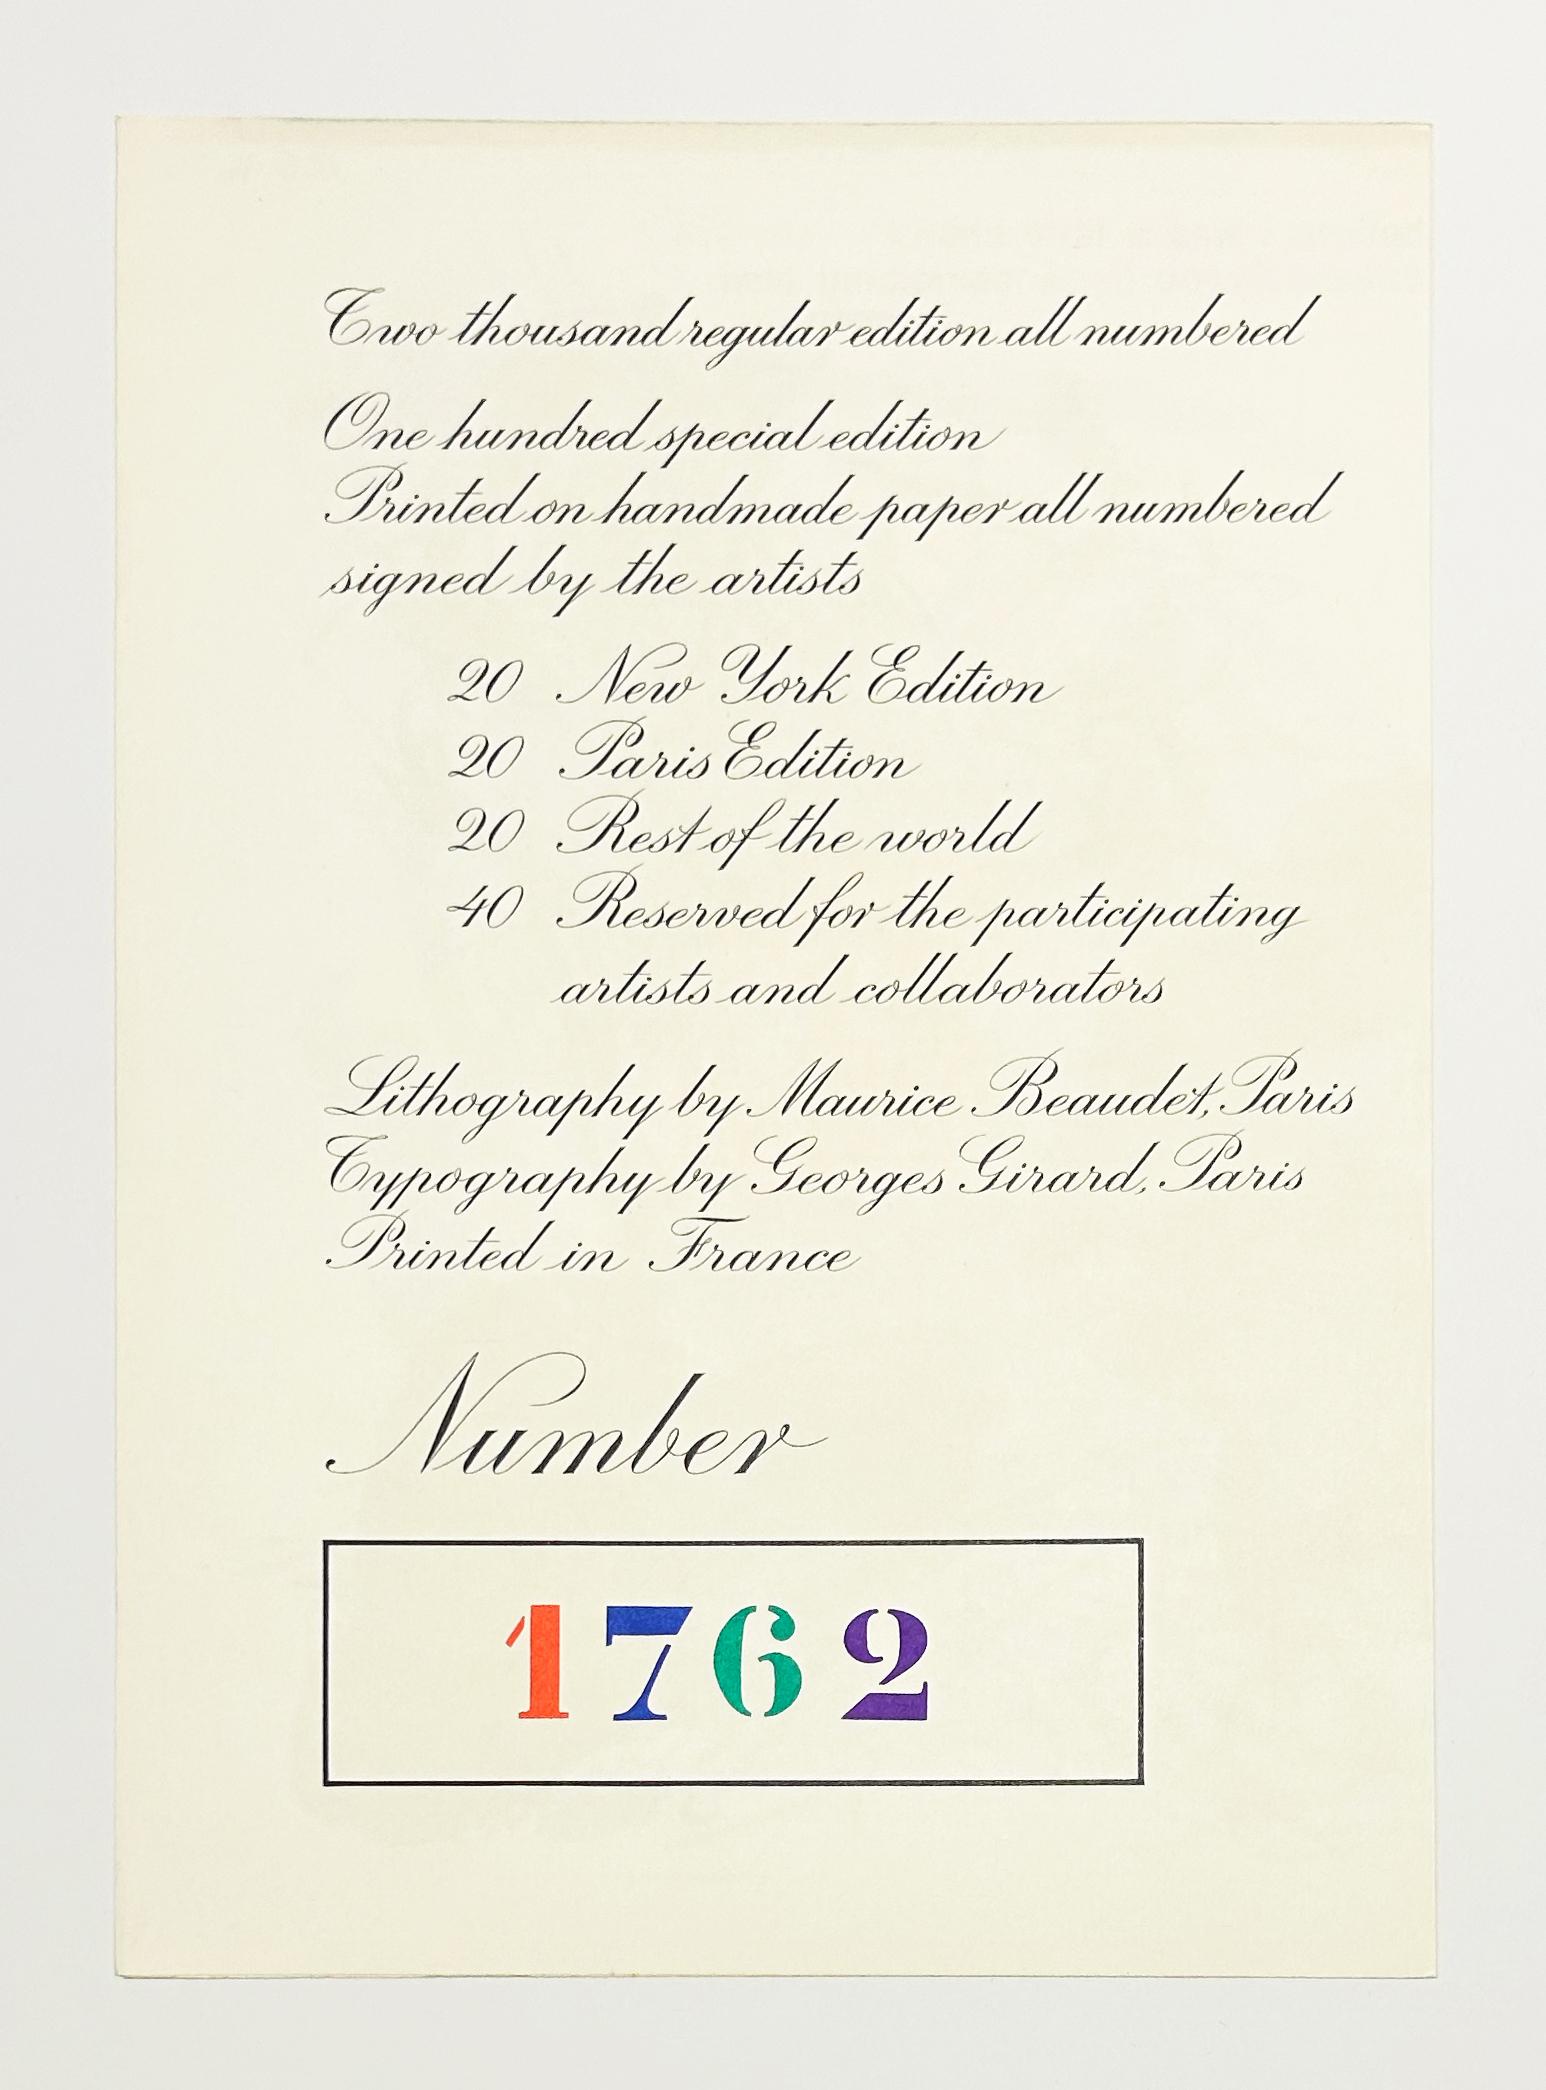 Two thousand regular edition all numbered
One hundred special edition
Printed on handmade paper all numbered
signed by the artists
20 New York Edition
20 Paris Edition
20 Rest of the world
40 Reserved for the participating
artists and collaborators
Lithography by Maurice Beaudet, Paris
Typography by Georges Girard, Paris
Printed in France
Number
1762